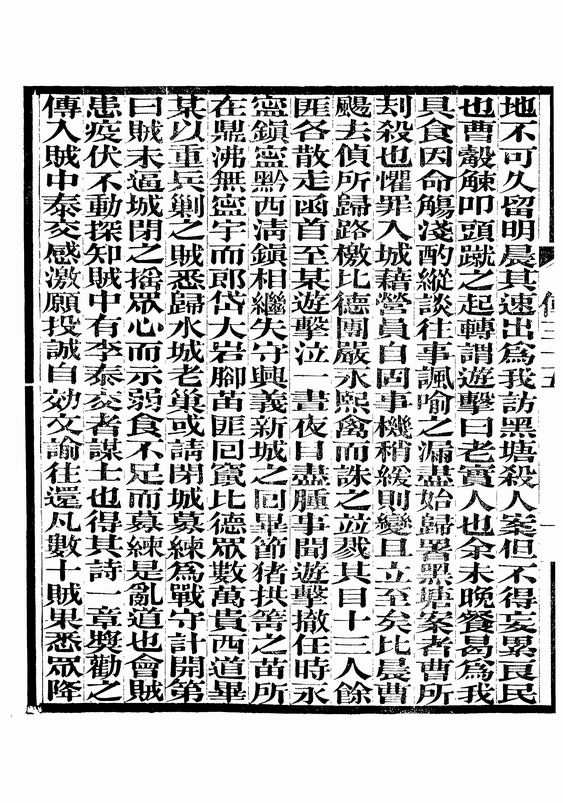 地不可久留明晨其速出爲我訪黑塘殺人案但不得妄累良民
也曹觳觫叩頭蹴之起轉謂遊擊曰老實人也余未晚餐曷爲我
具食因命觴淺酌縱談往事諷喻之漏盡始歸署黑塘案者曹所
刦殺也懼罪入城藉營員自固事機稍緩則變且立至矣比晨曹
颺去偵所歸路檄比德團嚴永熙禽而誅之竝戮其目十三人餘
匪各散走函首至某遊擊泣一晝夜目盡腫事聞遊擊撤任時永
寍鎭寍黔西淸鎭相繼失守興義新城之囘畢節猪拱箐之苗所
在鼎沸無寍宇而郎岱大岩腳苗匪囘竄比德眾數萬貴西道畢
某以重兵剿之賊悉歸水城老巢或請閉城募練爲戰守計開第
曰賊未逼城閉之搖眾心而示弱食不足而募練是亂道也會賊
患疫伏不動探知賊中有李泰交者謀士也得其詩一章奬勸之
傳入賊中泰交感激願投誠自効文諭往還凡數十賊果悉眾降